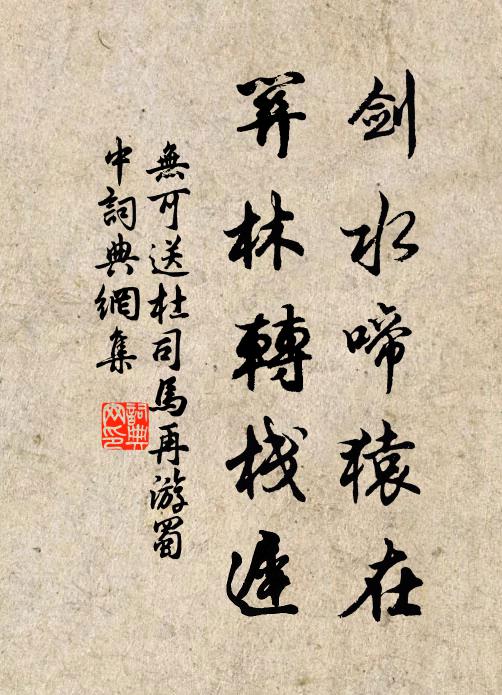 劍水啼猿在
關林轉栈遲
無可送杜司馬再游蜀
中詞典網集
詞典
网印